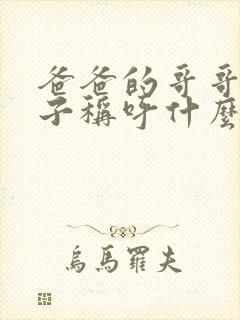 爸爸的哥哥
子稱呼什麼
烏馬羅夫